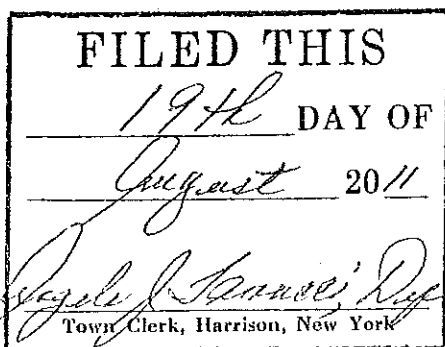 FILED THIS
19th DAY OF
August 2011
Angelo J. Dep
Town Clerk, Harrison, New York